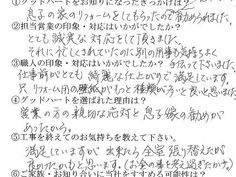 ①グッドハートをお知りになったきっかけは？
息子の家のリフォームをしてもらったので勧められました。
②担当営業の印象・対応はいかがでしたか？
とても誠実な対応をして頂きました。
それに忙しくされていたのに別の用事も気持ちよく
③職人の印象・対応はいかがでしたか？ 手伝って下さいました。
仕事前がとても綺麗な仕上がりで満足しています。
只リフォーム用の壁紙がもっと種類が多いと良いと思いました。
④グッドハートを選ばれた理由は？
営業の方の親切な応対と息子嫁の勧めが
あったから。
⑤工事を終えてのお気持ちを教えて下さい。
満足していますが出来たら全室張り替えたが
良かったかもと思います。（お金の事を考え過ぎたかナ）
⑥ご家族・お知り合いに当社をすすめる可能性は？